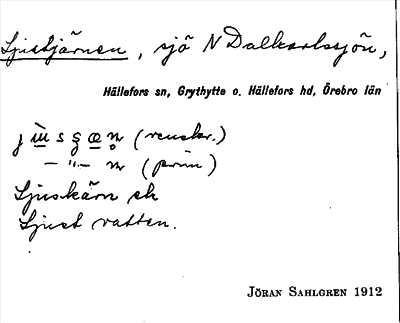 Ljustjärnen, sjö N Dalkarlssjön,
Hällefors sn, Grythytte o. Hällefors hd, Örebro län
(renskr.)
— " — (prim)
Ljuskärn ek
Ljust vatten.
JÖRAN SAHLGREN 1912